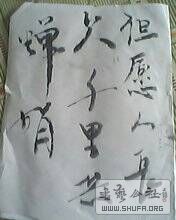 但愿人长
久千里共
婵娟
書藝公社
WWW.SHUFA.ORG